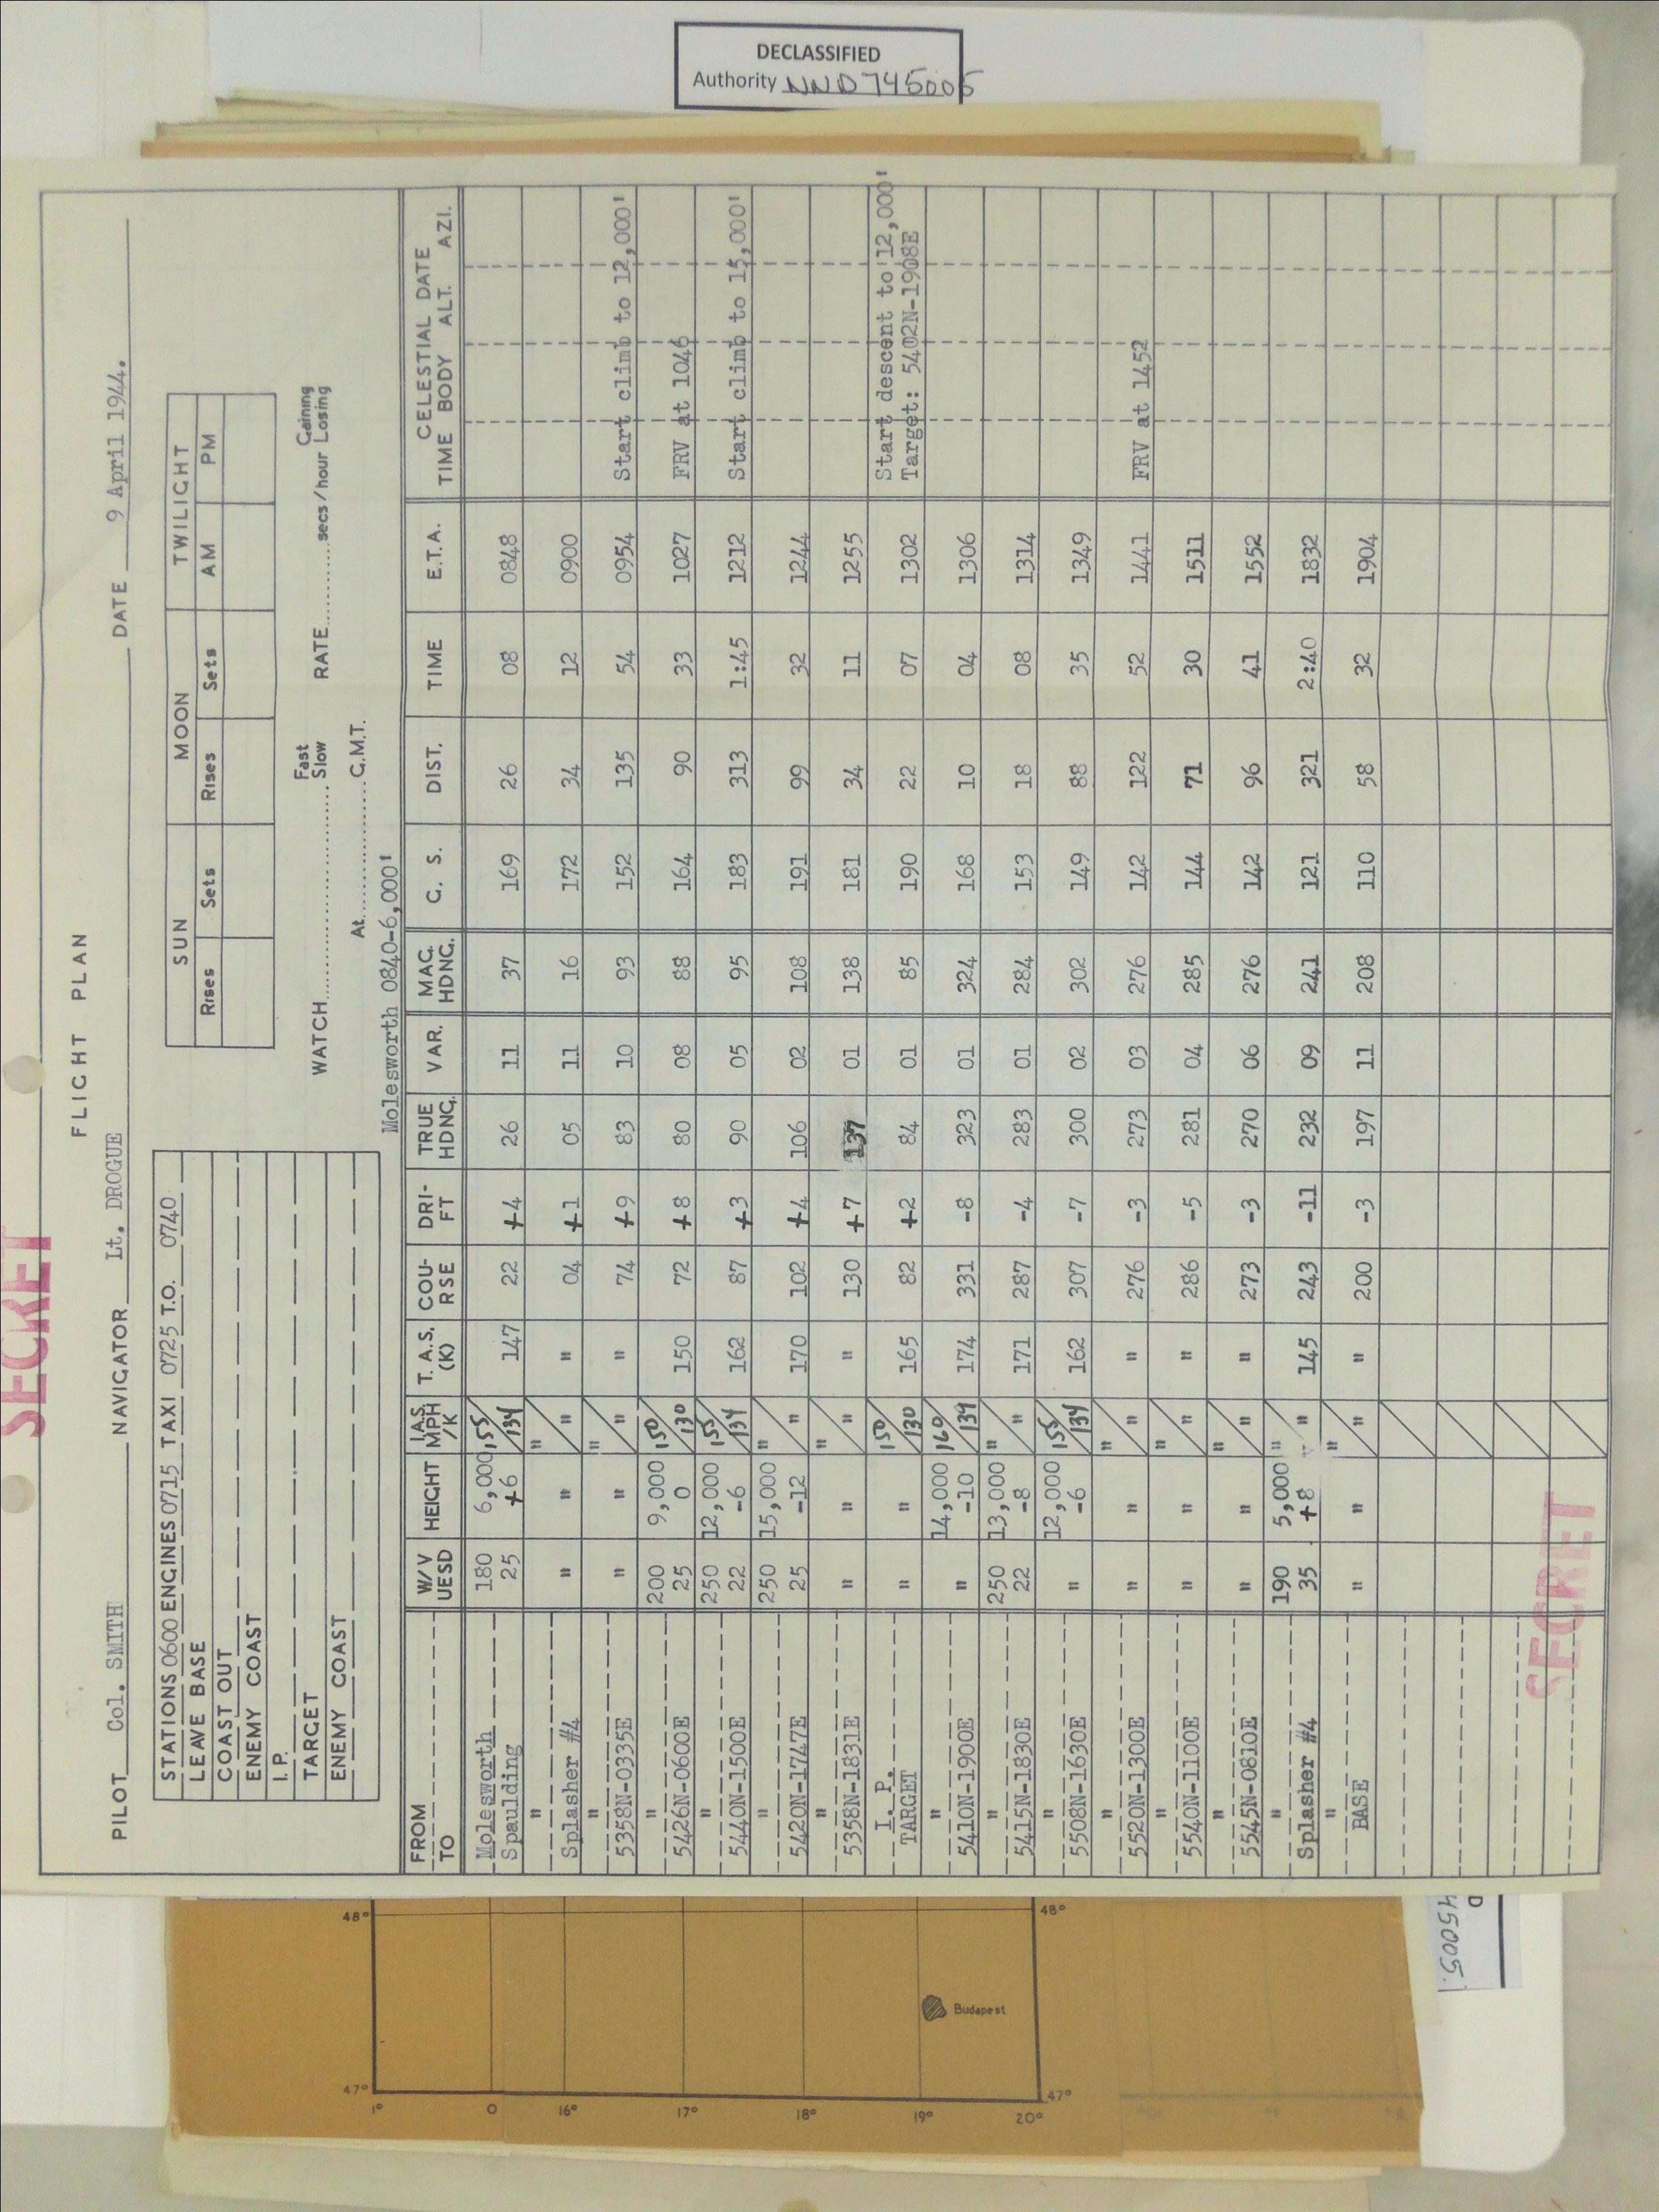 DECLASSIFIED
Authority NND 745005
SECRET
FLIGHT PLAN
PILOT Col. SMITH NAVIGATOR Lt. DROGUE DATE 9 April 1944.
STATIONS 0600 ENGINES 0715 TAXI 0725 T.O. 0740
LEAVE BASE
COAST OUT
ENEMY COAST
I.P.
TARGET
ENEMY COAST
SUN MOON TWILIGHT
Rises Sets Rises Sets AM PM
WATCH Fast Slow RATE secs/hour Gaining Losing
At G.M.T.
Molesworth 0840-6,000'
FROM TO W/V UESD HEIGHT I.A.S. MPH /K T.A.S. (K) COU-RSE DRI-FT TRUE HDNG. VAR. MAG. HDNG. G. S. DIST. TIME E.T.A. CELESTIAL DATE TIME BODY ALT. AZI.
Molesworth Spaulding 180 25 6,000 +6 155/134 147 22 +4 26 11 37 169 26 08 0848
" Splasher #4 " " "/" " 04 +1 05 11 16 172 34 12 0900
" 5358N-0335E " " "/" " 74 +9 83 10 93 152 135 54 0954 Start climb to 12,000'
" 5426N-0600E 200 25 9,000 0 150/130 150 72 +8 80 08 88 164 90 33 1027 FRV at 1046
" 5440N-1500E 250 22 12,000 -6 155/134 162 87 +3 90 05 95 183 313 1:45 1212 Start climb to 15,000'
" 5420N-1747E 250 25 15,000 -12 "/" 170 102 +4 106 02 108 191 99 32 1244
" 5358N-1831E " " "/" " 130 +7 137 01 138 181 34 11 1255
I. P. TARGET " " 150/130 165 82 +2 84 01 85 190 22 07 1302 Start descent to 12,000' Target: 5402N-1908E
" 5410N-1900E " 14,000 -10 160/139 174 331 -8 323 01 324 168 10 04 1306
" 5415N-1830E 250 22 13,000 -8 "/" 171 287 -4 283 01 284 153 18 08 1314
" 5508N-1630E " 12,000 -6 155/134 162 307 -7 300 02 302 149 88 35 1349
" 5520N-1300E " " "/" " 276 -3 273 03 276 142 122 52 1441 FRV at 1452
" 5540N-1100E " " "/" " 286 -5 281 04 285 144 71 30 1511
" 5545N-0810E " " "/" " 273 -3 270 06 276 142 96 41 1552
" Splasher #4 190 35 5,000 +8 "/" 145 243 -11 232 09 241 121 321 2:40 1832
" BASE " " "/" " 200 -3 197 11 208 110 58 32 1904
SECRET
48° 48°
Budapest
47° 47°
1° 0 16° 17° 18° 19° 20°
D
45005